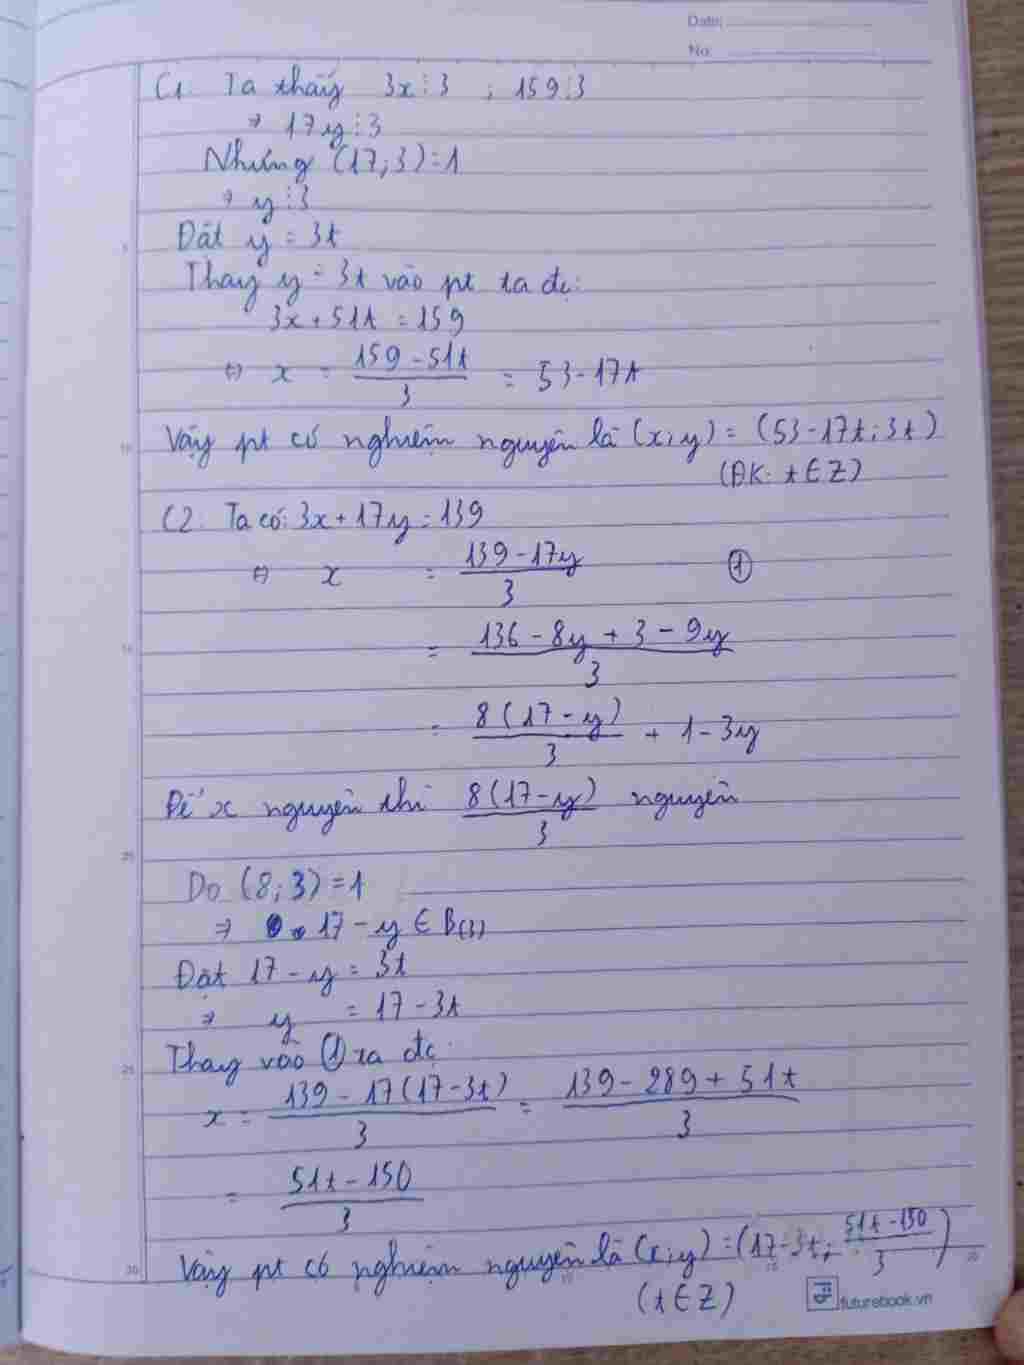 Date:
No:
C1. Ta thấy 3x⋮3 ; 159⋮3
⇒ 17y⋮3
Nhưng (17;3)=1
⇒ y⋮3
Đặt y = 3t
Thay y = 3t vào pt ta đc:
3x + 51t = 159
⇔ x = (159 - 51t)/3 = 53 - 17t
Vậy pt có nghiệm nguyên là (x;y) = (53-17t; 3t)
(ĐK: t ∈ Z)
C2. Ta có: 3x + 17y = 139
⇔ x = (139 - 17y)/3 ①
= (136 - 8y + 3 - 9y)/3
= 8(17 - y)/3 + 1 - 3y
Để x nguyên thì 8(17-y)/3 nguyên
Do (8;3) = 1
⇒ 17 - y ∈ B(3)
Đặt 17 - y = 3t
⇒ y = 17 - 3t
Thay vào ① ta đc
x = (139 - 17(17-3t))/3 = (139 - 289 + 51t)/3
= (51t - 150)/3
Vậy pt có nghiệm nguyên là (x;y) = (17-3t; (51t-150)/3)
(t ∈ Z)
futurebook.vn